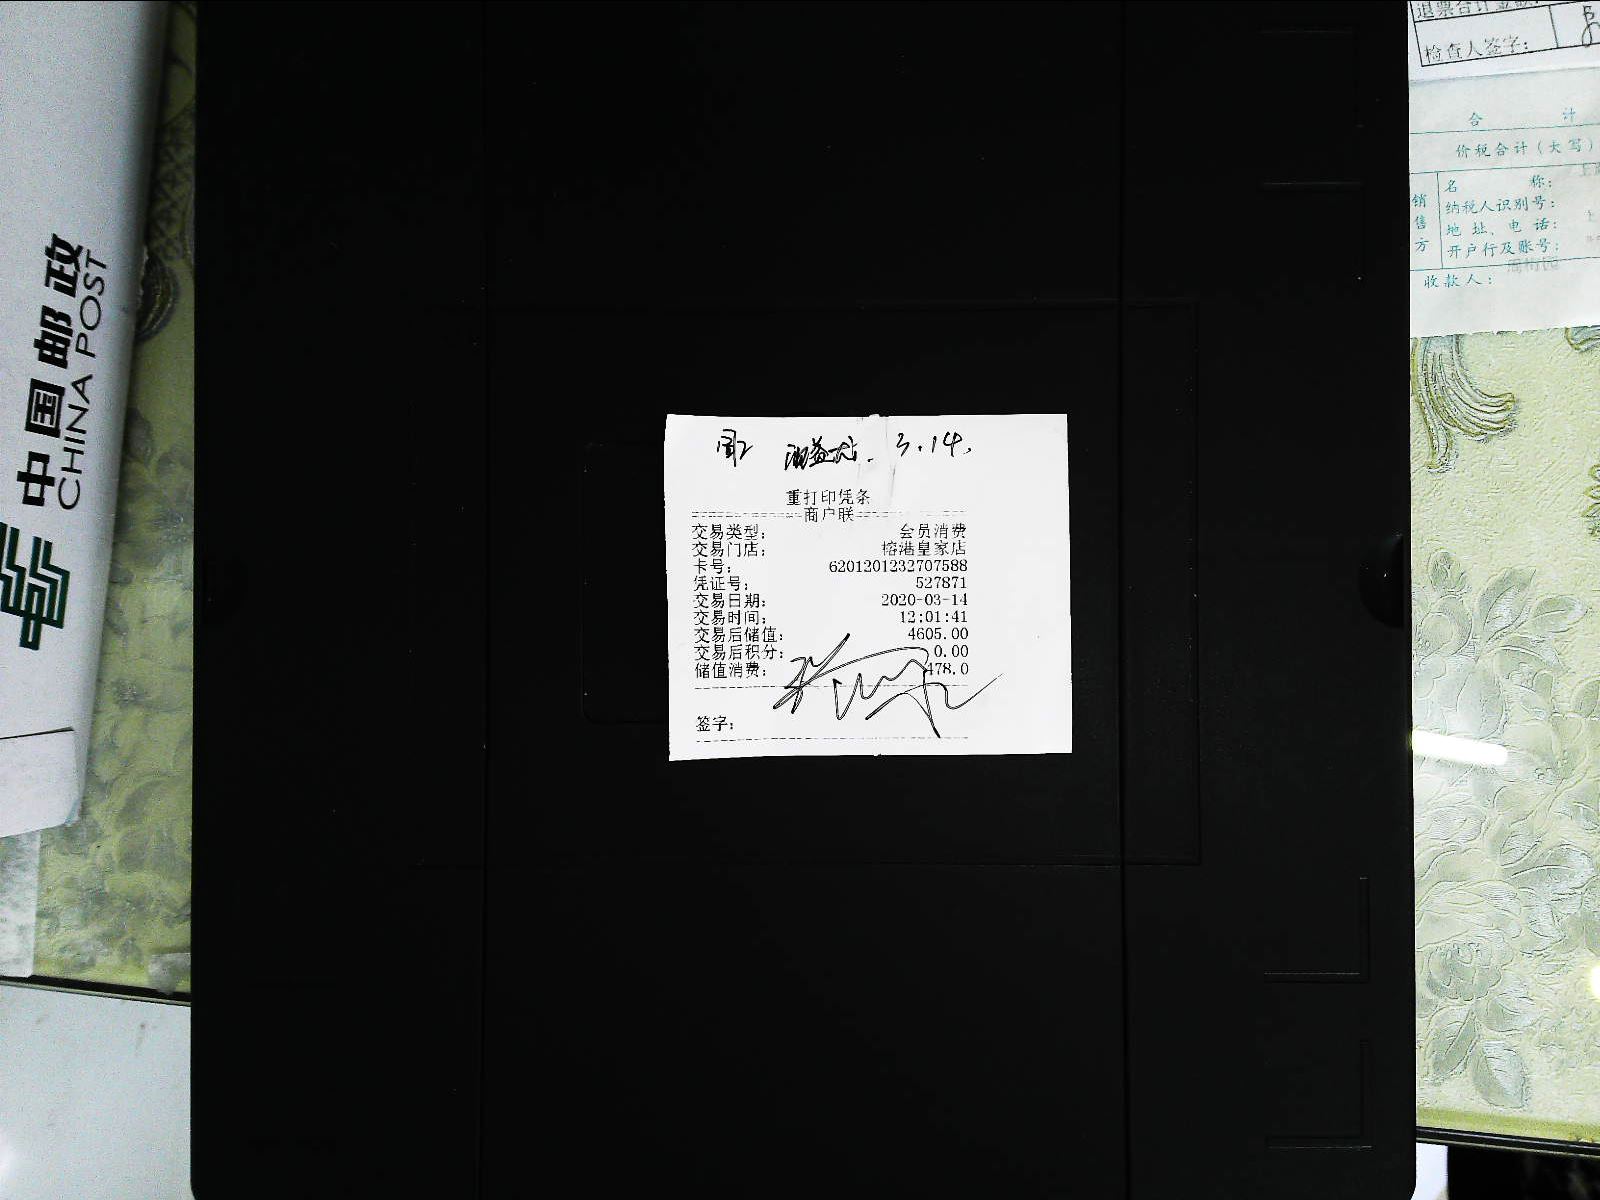 中国邮政
CHINA POST
3.14.
重打印凭条
商户联
交易类型： 会员消费
交易门店： 榕港皇家店
卡号： 6201201232707588
凭证号： 527871
交易日期： 2020-03-14
交易时间： 12:01:41
交易后储值： 4605.00
交易后积分： 0.00
储值消费： 478.0
签字：
检查人签字：
合 计
价税合计（大写）
销售方
名 称：
纳税人识别号：
地 址、电 话：
开户行及账号：
收款人：